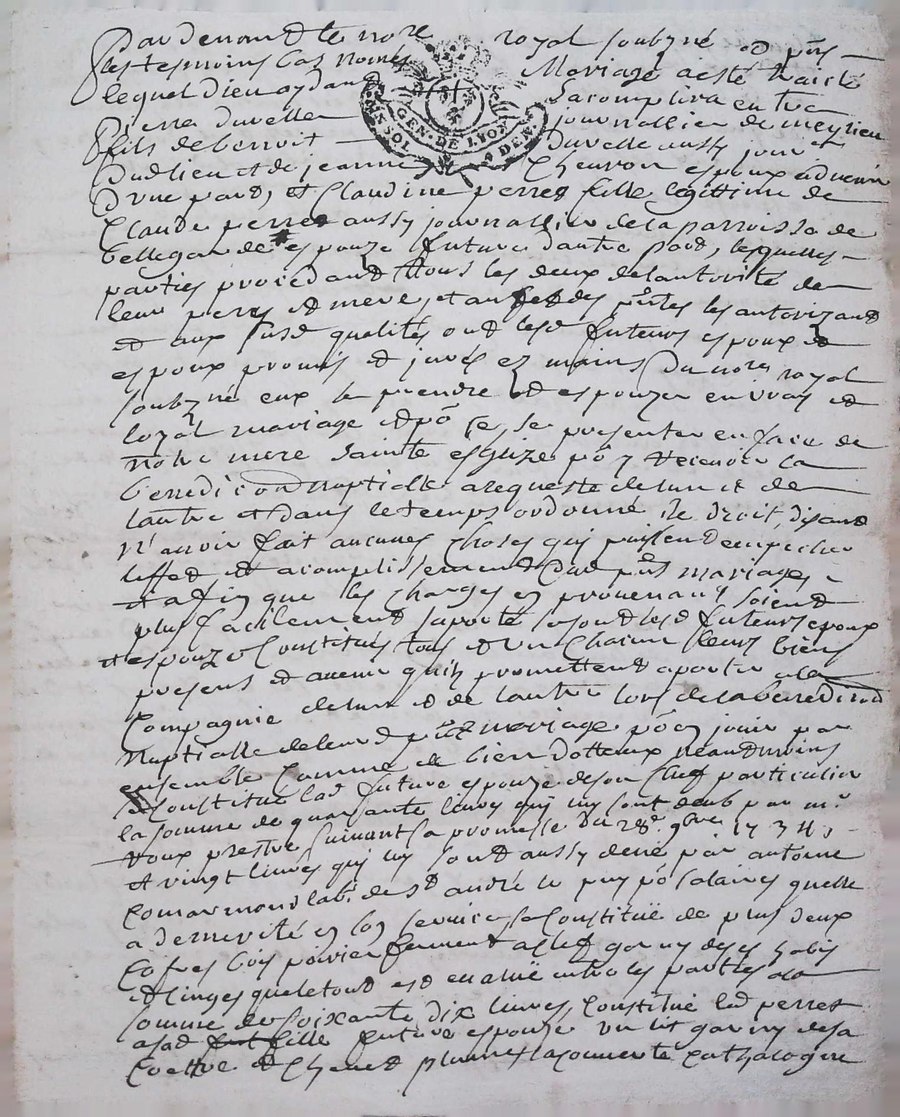 Pardevant le nore royal soubzné et pñts
les tesmoins bas només Mariage a esté traicté
lequel Dieu aydant sacomplira entre
Pierre duvelle journallier de meyrieu
fils de benoit Duvelle aussy jour.er
dud lieu et de jeanne espoux advenir
Dune part, et Claudine perret fille legittime de
Claude perret aussy journallier de la parroisse de
bellegarde espouze future dautre part, lesquelles
parties procedant tous les deux de lautorité de
leur peres et mere, et pñtes les autorizant
et aux susd qualités ont lesd futurs espoux et
espouze promis et juré ez mains du nore royal
soubzné eux prendre et espouzer en vray et
loyal mariage et po ce se presenter en face de
notre mere sainte esglize po y recevoir la
benediction nuptialle a requeste de lun et de
lautre et dans le temps ordonné de droit, disant
n'avoir fait aucunes choses qui puissent empecher
leffet et acomplissement du pñt mariage
et afin que les charges en provenant soient
plus facilement suporté se sont lesd futurs epoux
et espouze Constitués tous et un chacun leurs biens
presens et avenir quils promettent aporter a la
Compagnie de lun et de lautre lors de la benediction
Nuptialle de leurd pñt mariage po en jouir par
ensemble Comme de bien dottaux neandmoins
se Constitue lad future espouze de son Chef particulier
la somme de quarante livres qui luy sont deub par mr
Roux prestre suivant sa promesse du 28e 9bre 1734,
et vingt livres qui luy sont aussy deue par antoine
labr de St andré le puy po salaires quelle
a derrevité en son service se Constitue de plus deux
Cofres bois poirier ferment a clef garny de ses habis
et linges que le tout est evalué entre les parties a la
somme de soixante dix livres, Constitue led perret
a sad fille future espouze un lit garny de sa
Coettre et Chevet plume la couverte Cathalogne
GEN. DE LYON